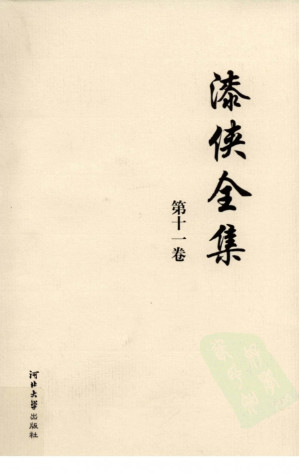 漆侠全集
第十一卷
河北大学出版社